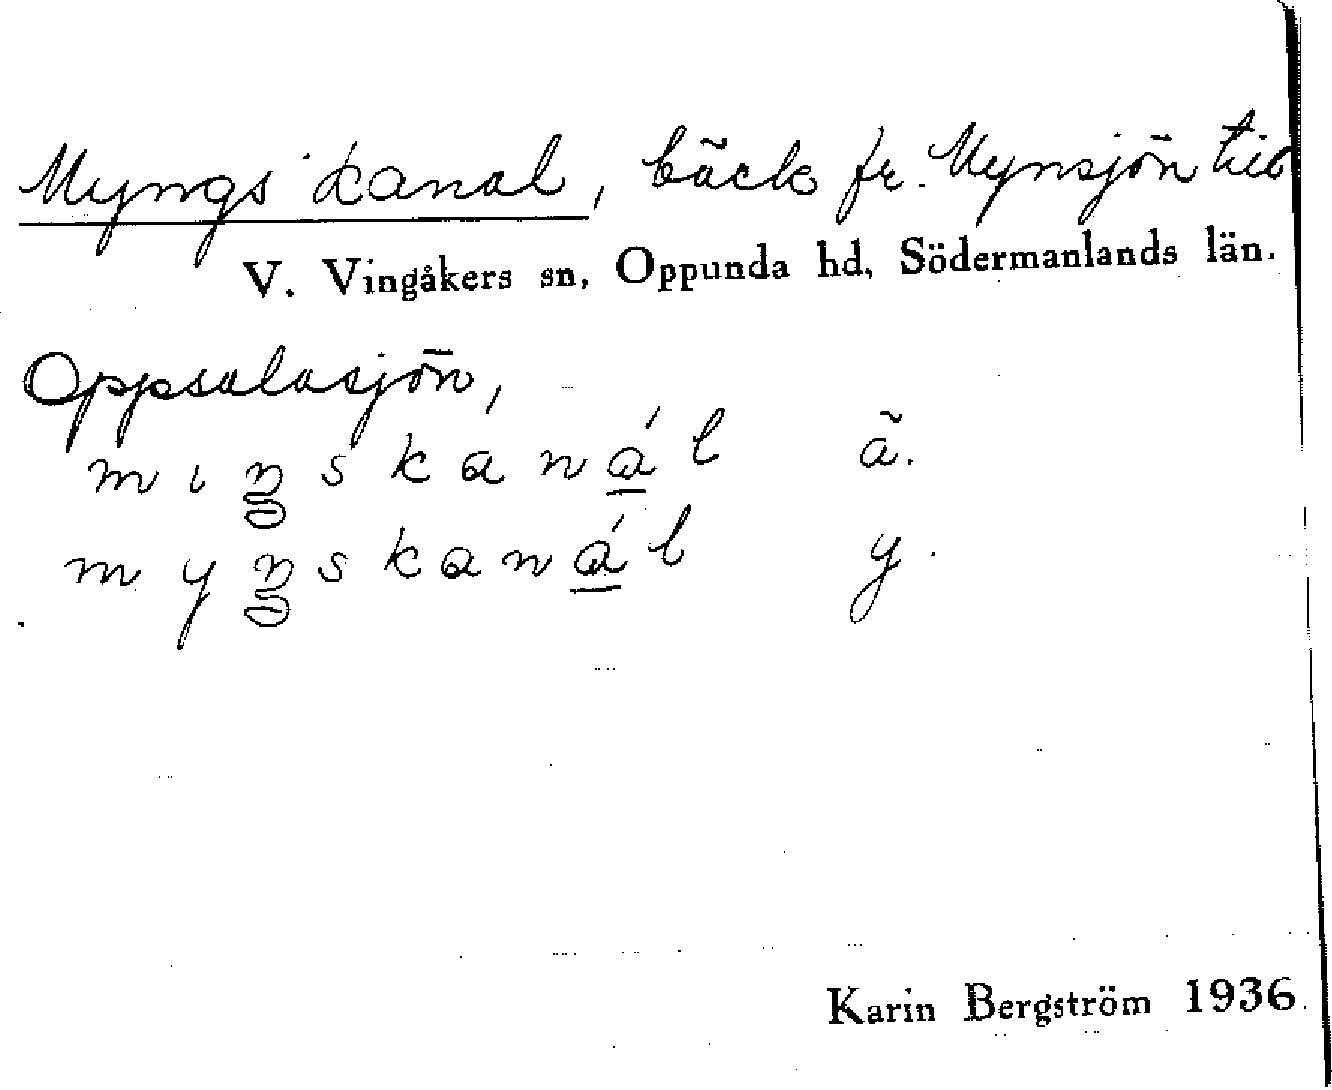 Myngs kanal, bäck fr. Mynsjön till
V. Vingåkers sn, Oppunda hd, Södermanlands län.
Oppsalasjön,
mıŋskanál ä.
myŋskanál y.
Karin Bergström 1936